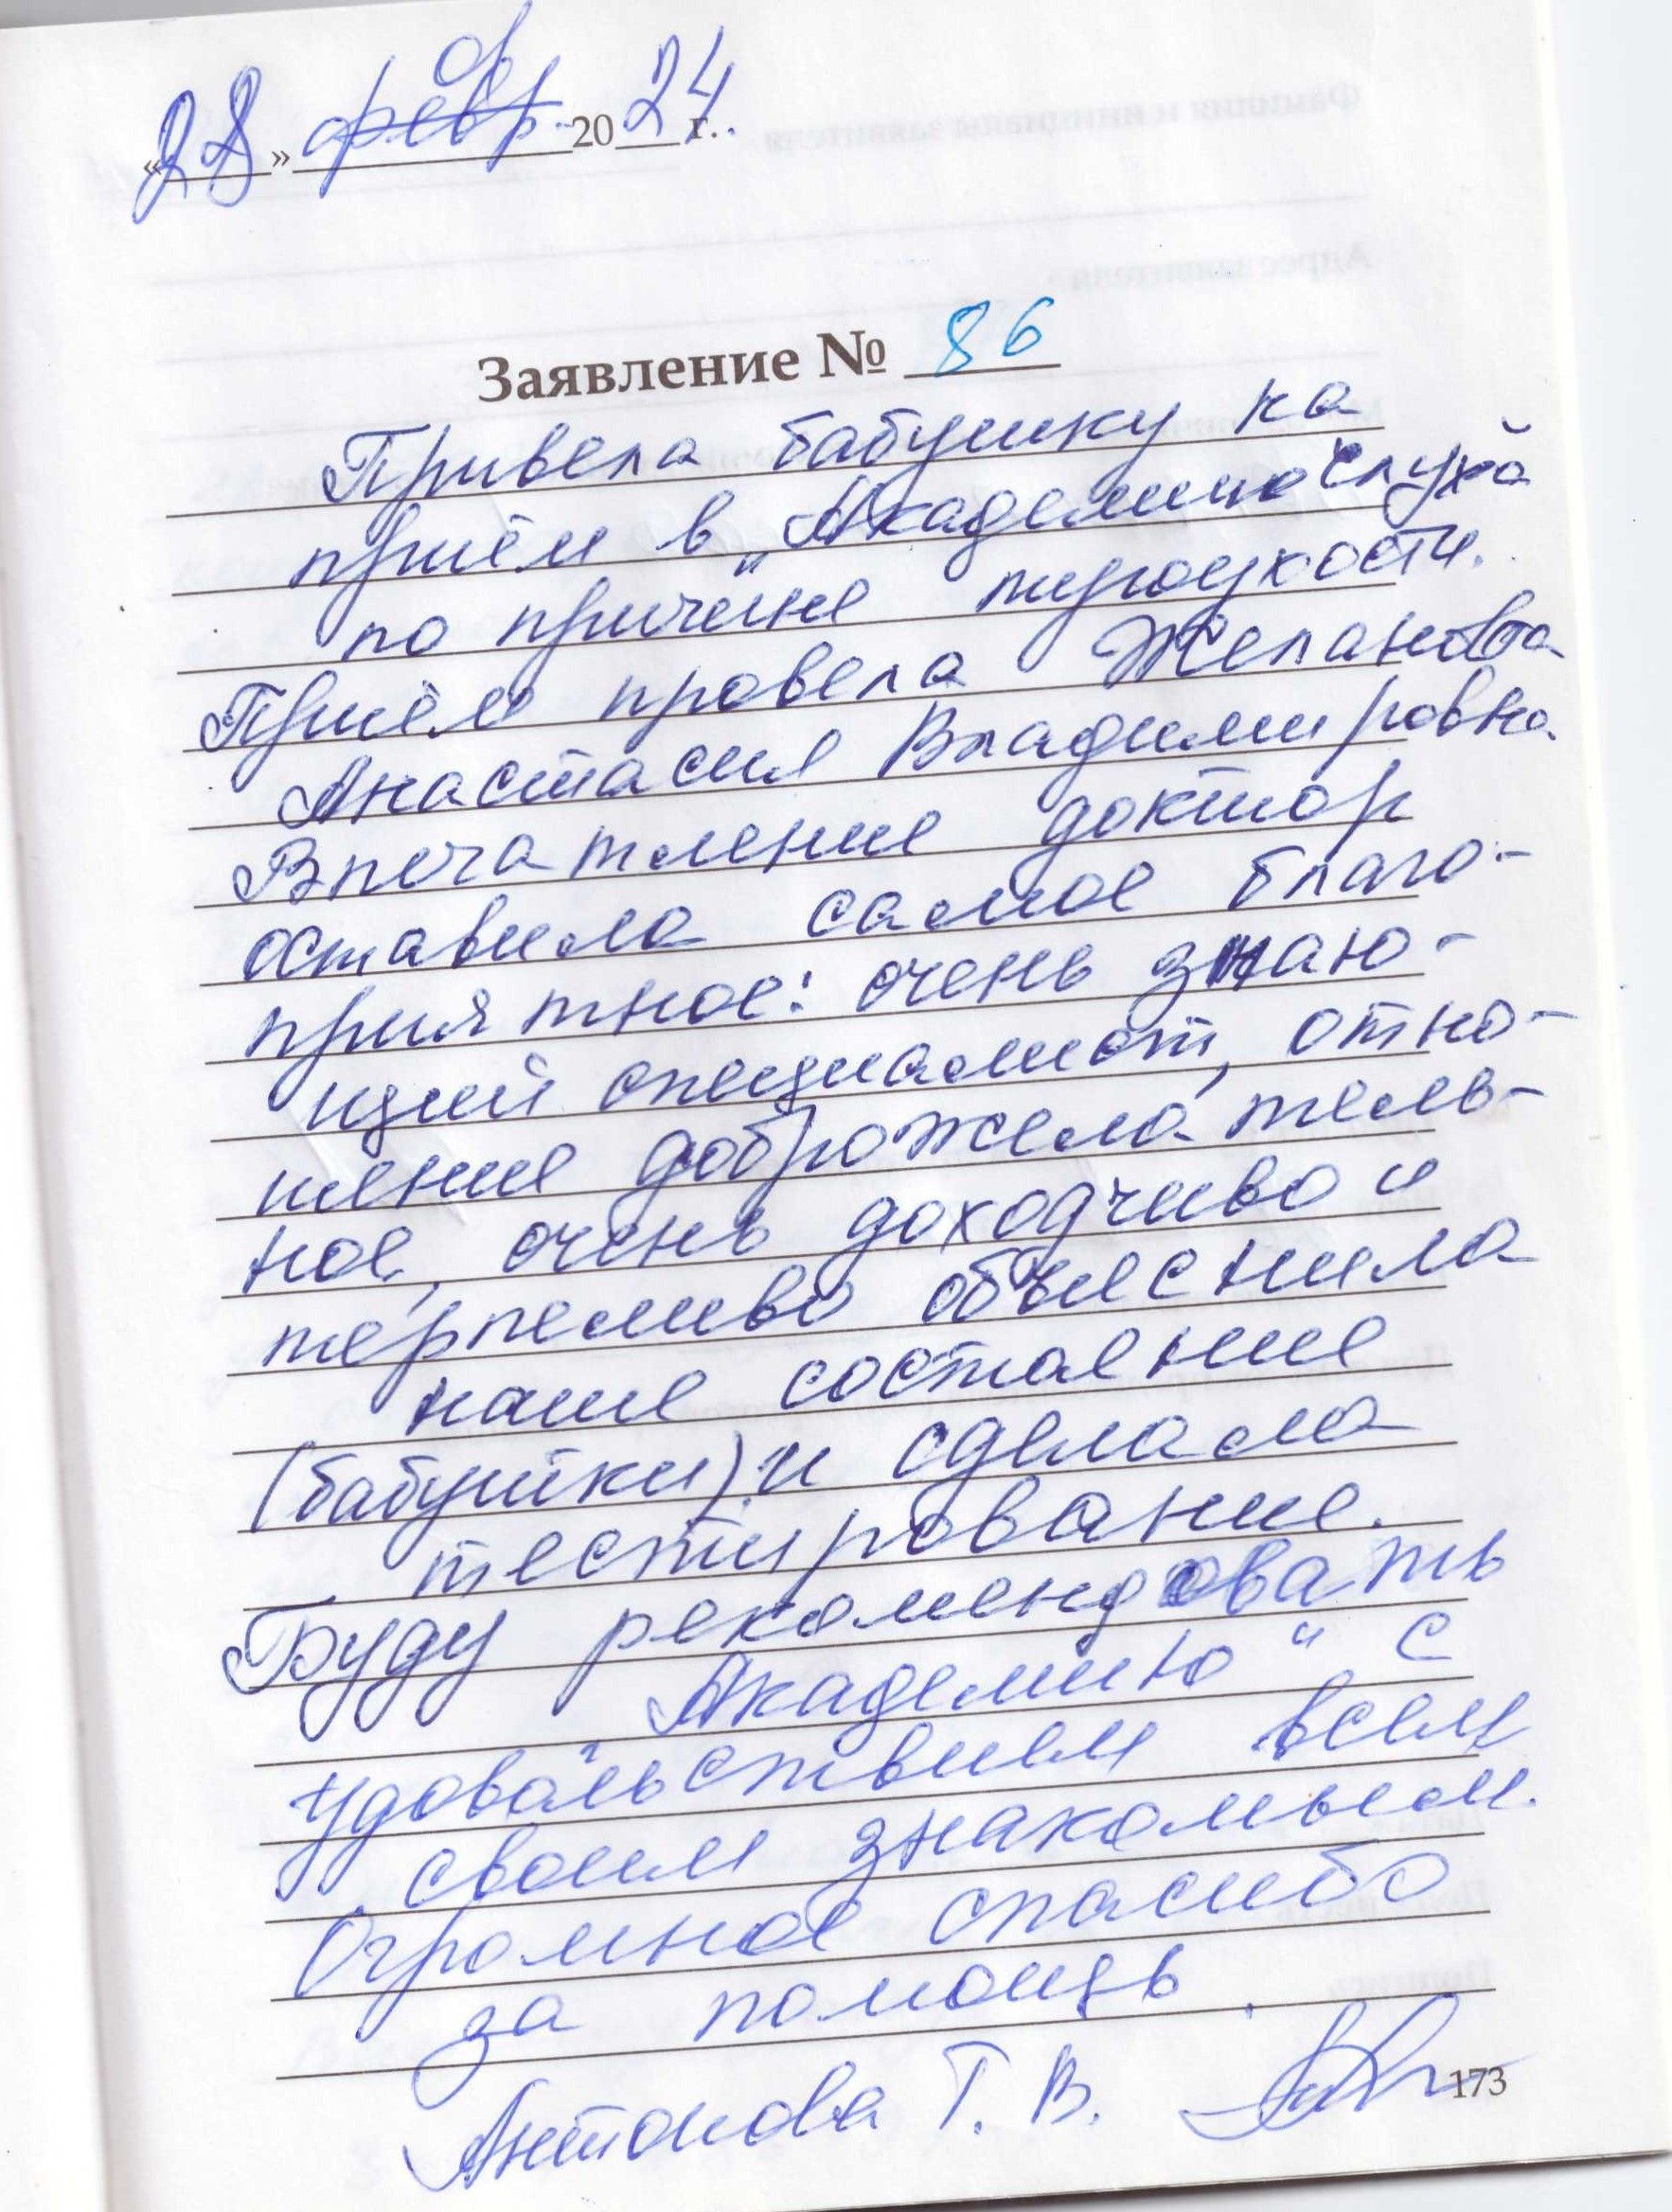 «28» февр. 2024 г.
Заявление № 86
Привела бабушку на
приём в „Академию Слуха
по причине тугоухости.
Приём провела Желанова
Анастасия Владимировна
Впечатление доктор
оставила самое благо-
приятное: очень знаю-
щий специалист, отно-
шение доброжелатель-
ное, очень доходчиво и
терпеливо объяснила
наше состояние
(бабушки) и сделала
тестирование.
Буду рекомендовать
„Академию" с
удовольствием всем
своим знакомым.
Огромное спасибо
за помощь.
Антонова Т. В.
173